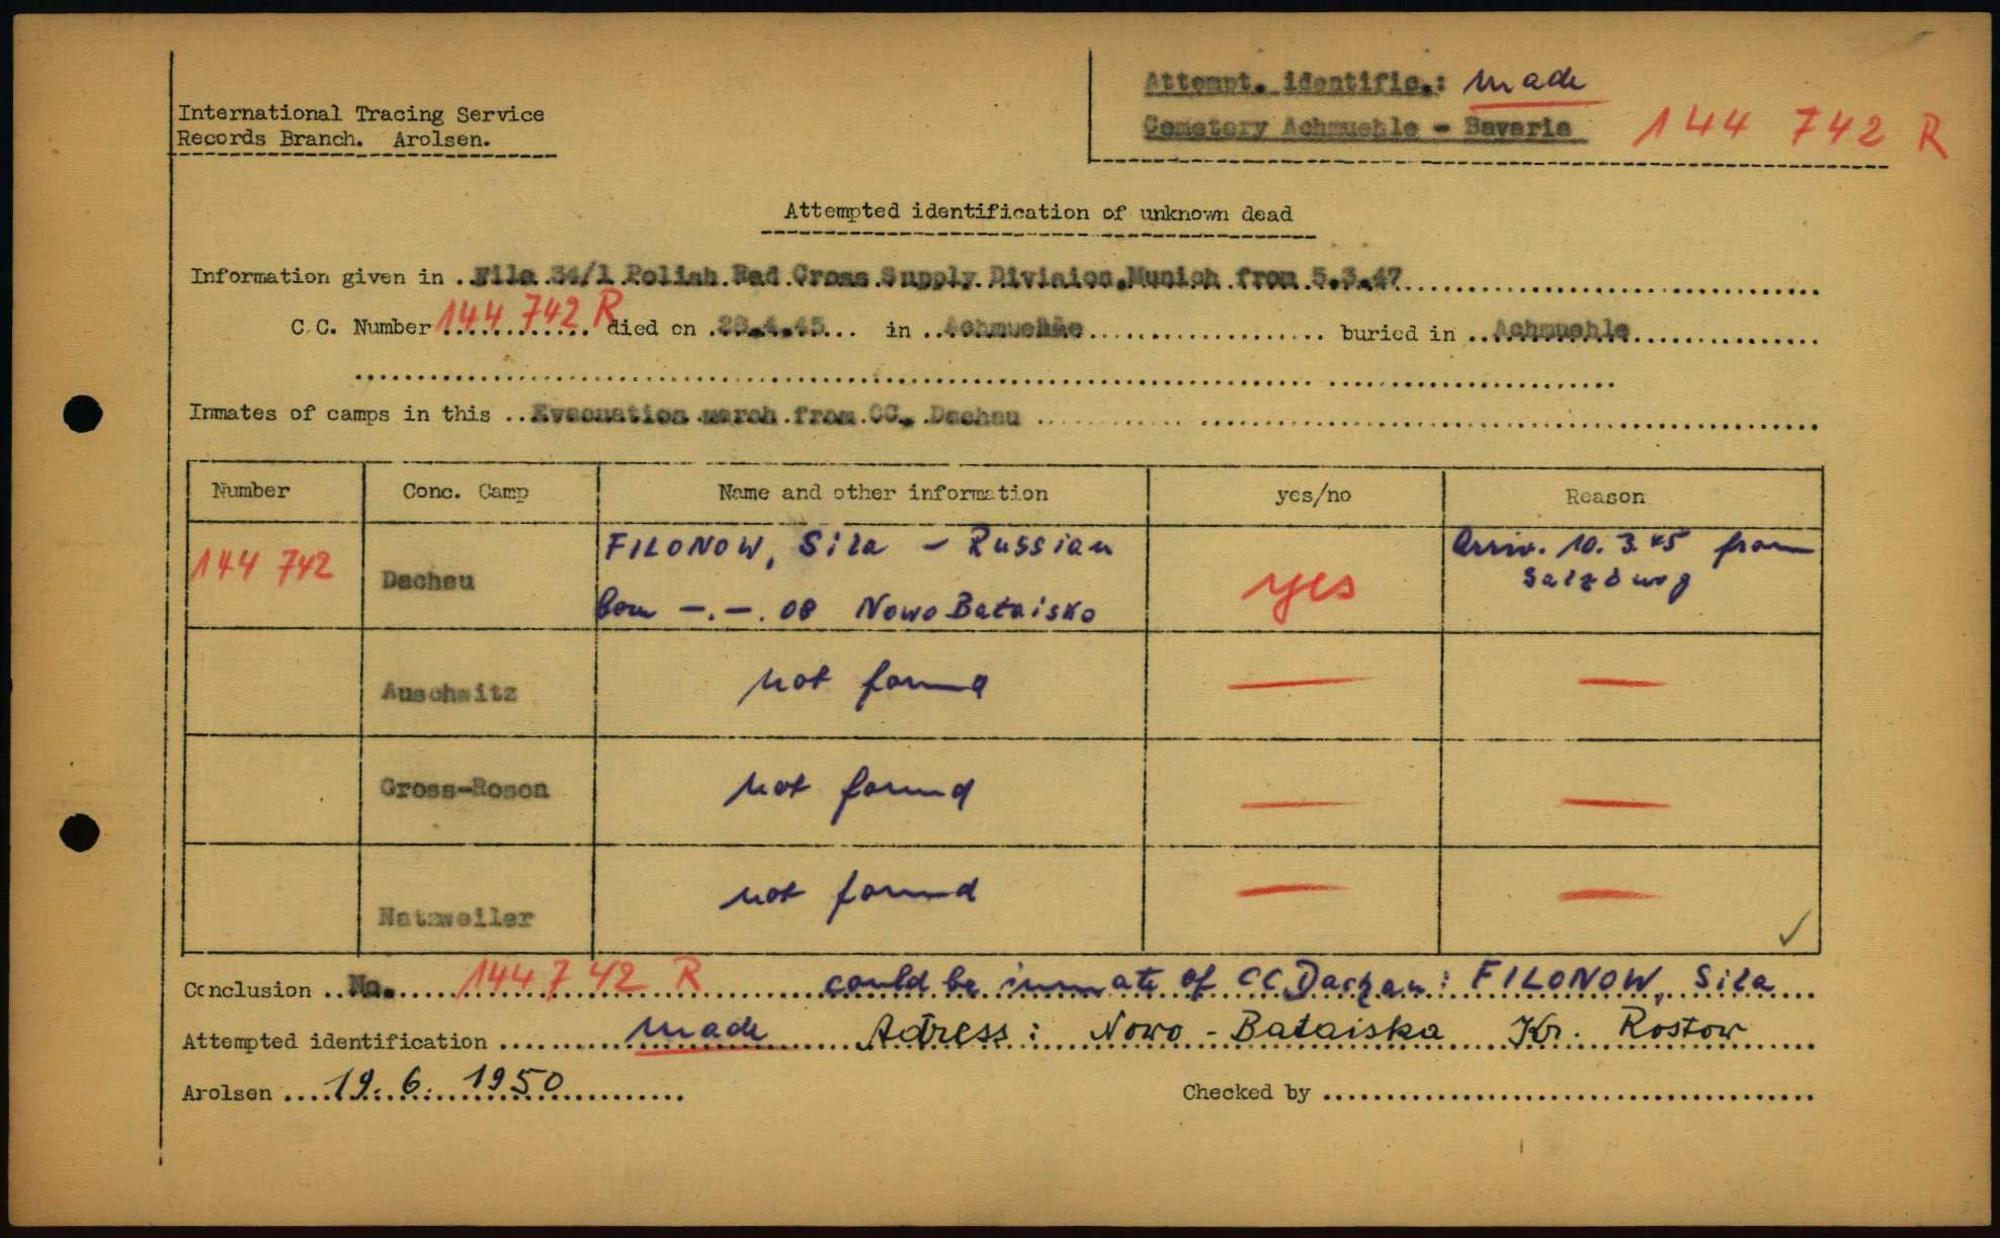 International Tracing Service
Records Branch. Arolsen.
Attempt. identific.: made
Cemetery Achmuehle - Bavaria 144 742 R
Attempted identification of unknown dead
Information given in File 34/1 Polish Red Cross Supply Division, Munich from 5.3.47
C.C. Number 144 742 R died on in Achmuehle buried in Achmuehle
Inmates of camps in this Evacuation march from CC. Dachau
Number Conc. Camp Name and other information yes/no Reason
144 742 Dachau FILONOW, Sila - Russian yes Arriv. 10.3.45 from
Salzburg
born -.-. 08 Nowo Bataisko
Auschwitz not found — —
Gross-Rosen not found — —
Natzweiler not found — —
Conclusion No. 144 742 R could be inmate of CC Dachau: FILONOW, Sila
Attempted identification made Adress: Nowo - Bataiska Kr. Rostow
Arolsen 19. 6. 1950 Checked by